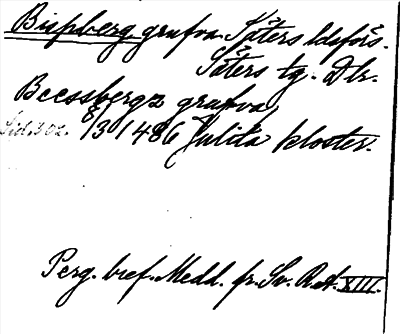 Bispberg grufva. Säters ldsförs.
Säters tg. Dlr.
Beessbergz grufva
8/3 1486 Julita kloster.
Perg. bref. Medd. fr. Sv. R.A. XIII.